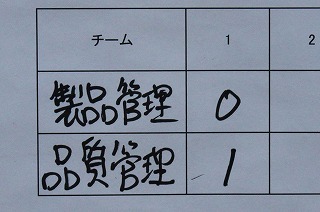 チーム 1 2
製品管理 0
品質管理 1